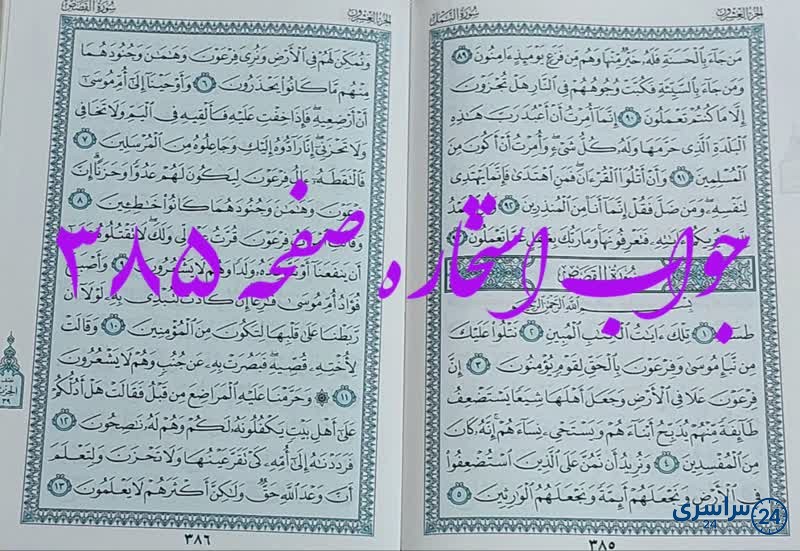 الجزء العشرون
سورة النمل
من جاء بالحسنة فله خير منها وهم من فزع يومئذ ءامنون ٨٩
ومن جاء بالسيئة فكبت وجوههم في النار هل تجزون
إلا ما كنتم تعملون ٩٠ إنما أمرت أن أعبد رب هذه
البلدة الذي حرمها وله كل شيء وأمرت أن أكون من
المسلمين ٩١ وأن أتلوا القرءان فمن اهتدى فإنما يهتدي
لنفسه ومن ضل فقل إنما أنا من المنذرين ٩٢
فتعرفونها وما ربك تعملون
سورة القصص
بسم الله الرحمن الرحيم
طسم ١ تلك ءايات الكتب المبين ٢ نتلوا عليك
من نبإ موسى وفرعون بالحق لقوم يؤمنون ٣ إن
فرعون علا في الأرض وجعل أهلها شيعا يستضعف
طائفة منهم يذبح أبناءهم ويستحيء نساءهم إنه كان
من المفسدين ٤ ونريد أن نمن على الذين استضعفوا
في الأرض ونجعلهم أئمة ونجعلهم الوارثين ٥
٣٨٥
الجزء العشرون
سورة القصص
ونمكن لهم في الأرض ونري فرعون وهامن وجنودهما
منهم ما كانوا يحذرون ٦ وأوحينا إلى أم موسى
أن أرضعيه فإذا خفت عليه فألقيه في اليم ولا تخافي
ولا تحزني إنا رادوه إليك وجاعلوه من المرسلين ٧
فالتقطه ءال فرعون ليكون لهم عدوا وحزنا إن
فرعون وهامن وجنودهما كانوا خاطين ٨
فرعون قرت لي ولك لا تقتلوه
أن ينفعنا أو ولدا وهم لا يشعرون وأصبح
فؤاد أم موسى فرغا إن كادت لتبدي به لولا أن
ربطنا على قلبها لتكون من المؤمنين ١٠ وقالت
لأخته قصيه فبصرت به عن جنب وهم لا يشعرون
١١ ۞ وحرمنا عليه المراضع من قبل فقالت هل أدلكم
على أهل بيت يكفلونه لكم وهم له ناصحون ١٢
فرددناه إلى أمه كي تقر عينها ولا تحزن ولتعلم
أن وعد الله حق ولكن أكثرهم لا يعلمون ١٣
٣٨٦
جواب استخاره صفحه ۳۸۵
سراسری 24
24